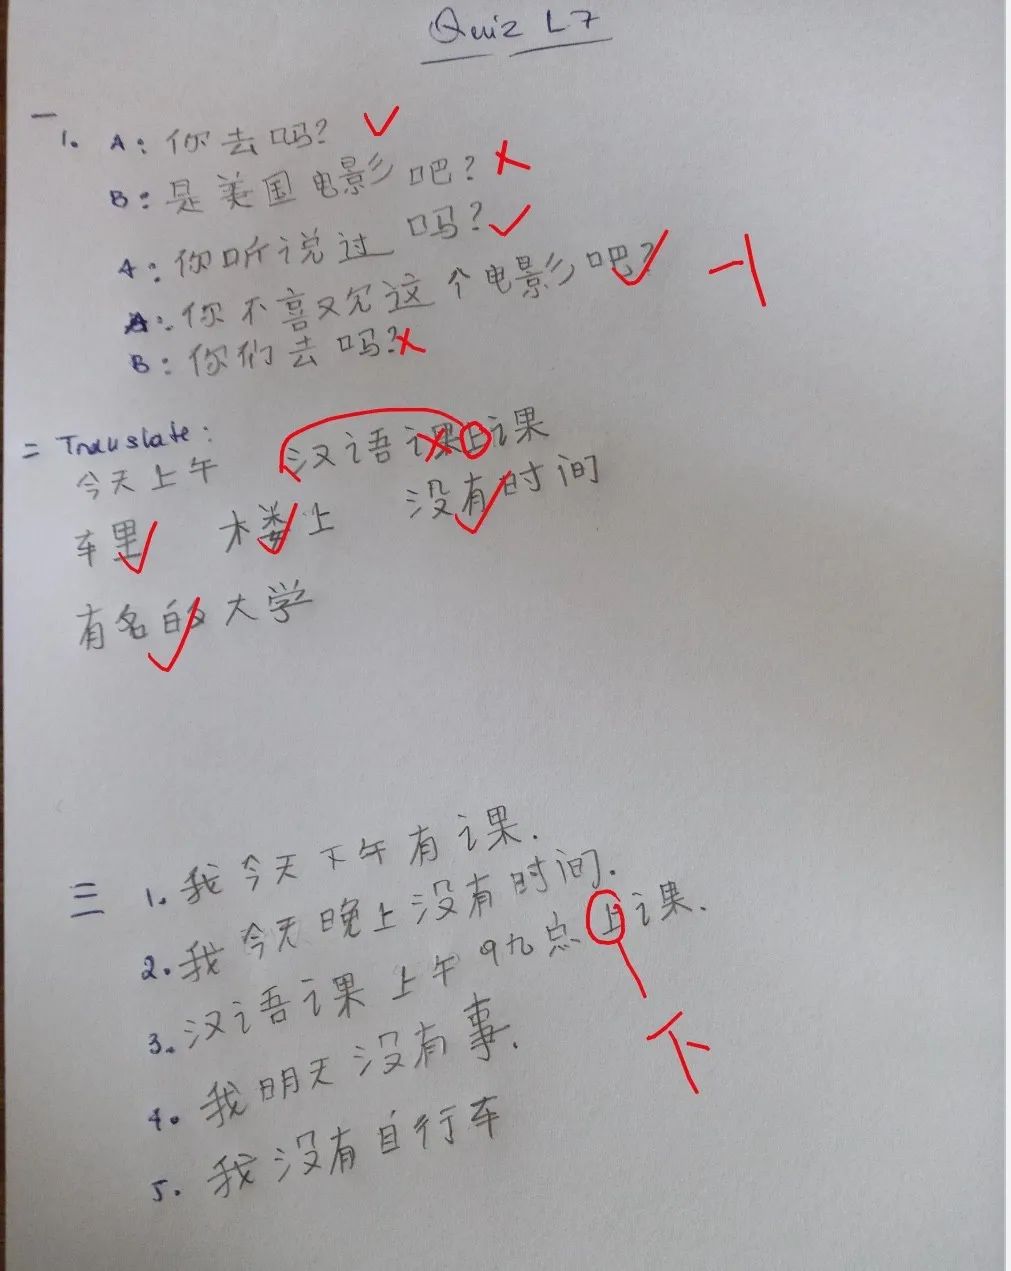 Quiz L7
一
1. A: 你去吗?
B: 是美国电影吧?
A: 你听说过吗?
A: 你不喜欢这个电影吧?
B: 你们去吗?
-1
二 Translate:
今天上午 汉语课上课
车里 楼上 没有时间
有名的大学
三 1. 我今天下午有课.
2. 我今天晚上没有时间.
3. 汉语课上午9九点上课.
下
4. 我明天没有事.
5. 我没有自行车